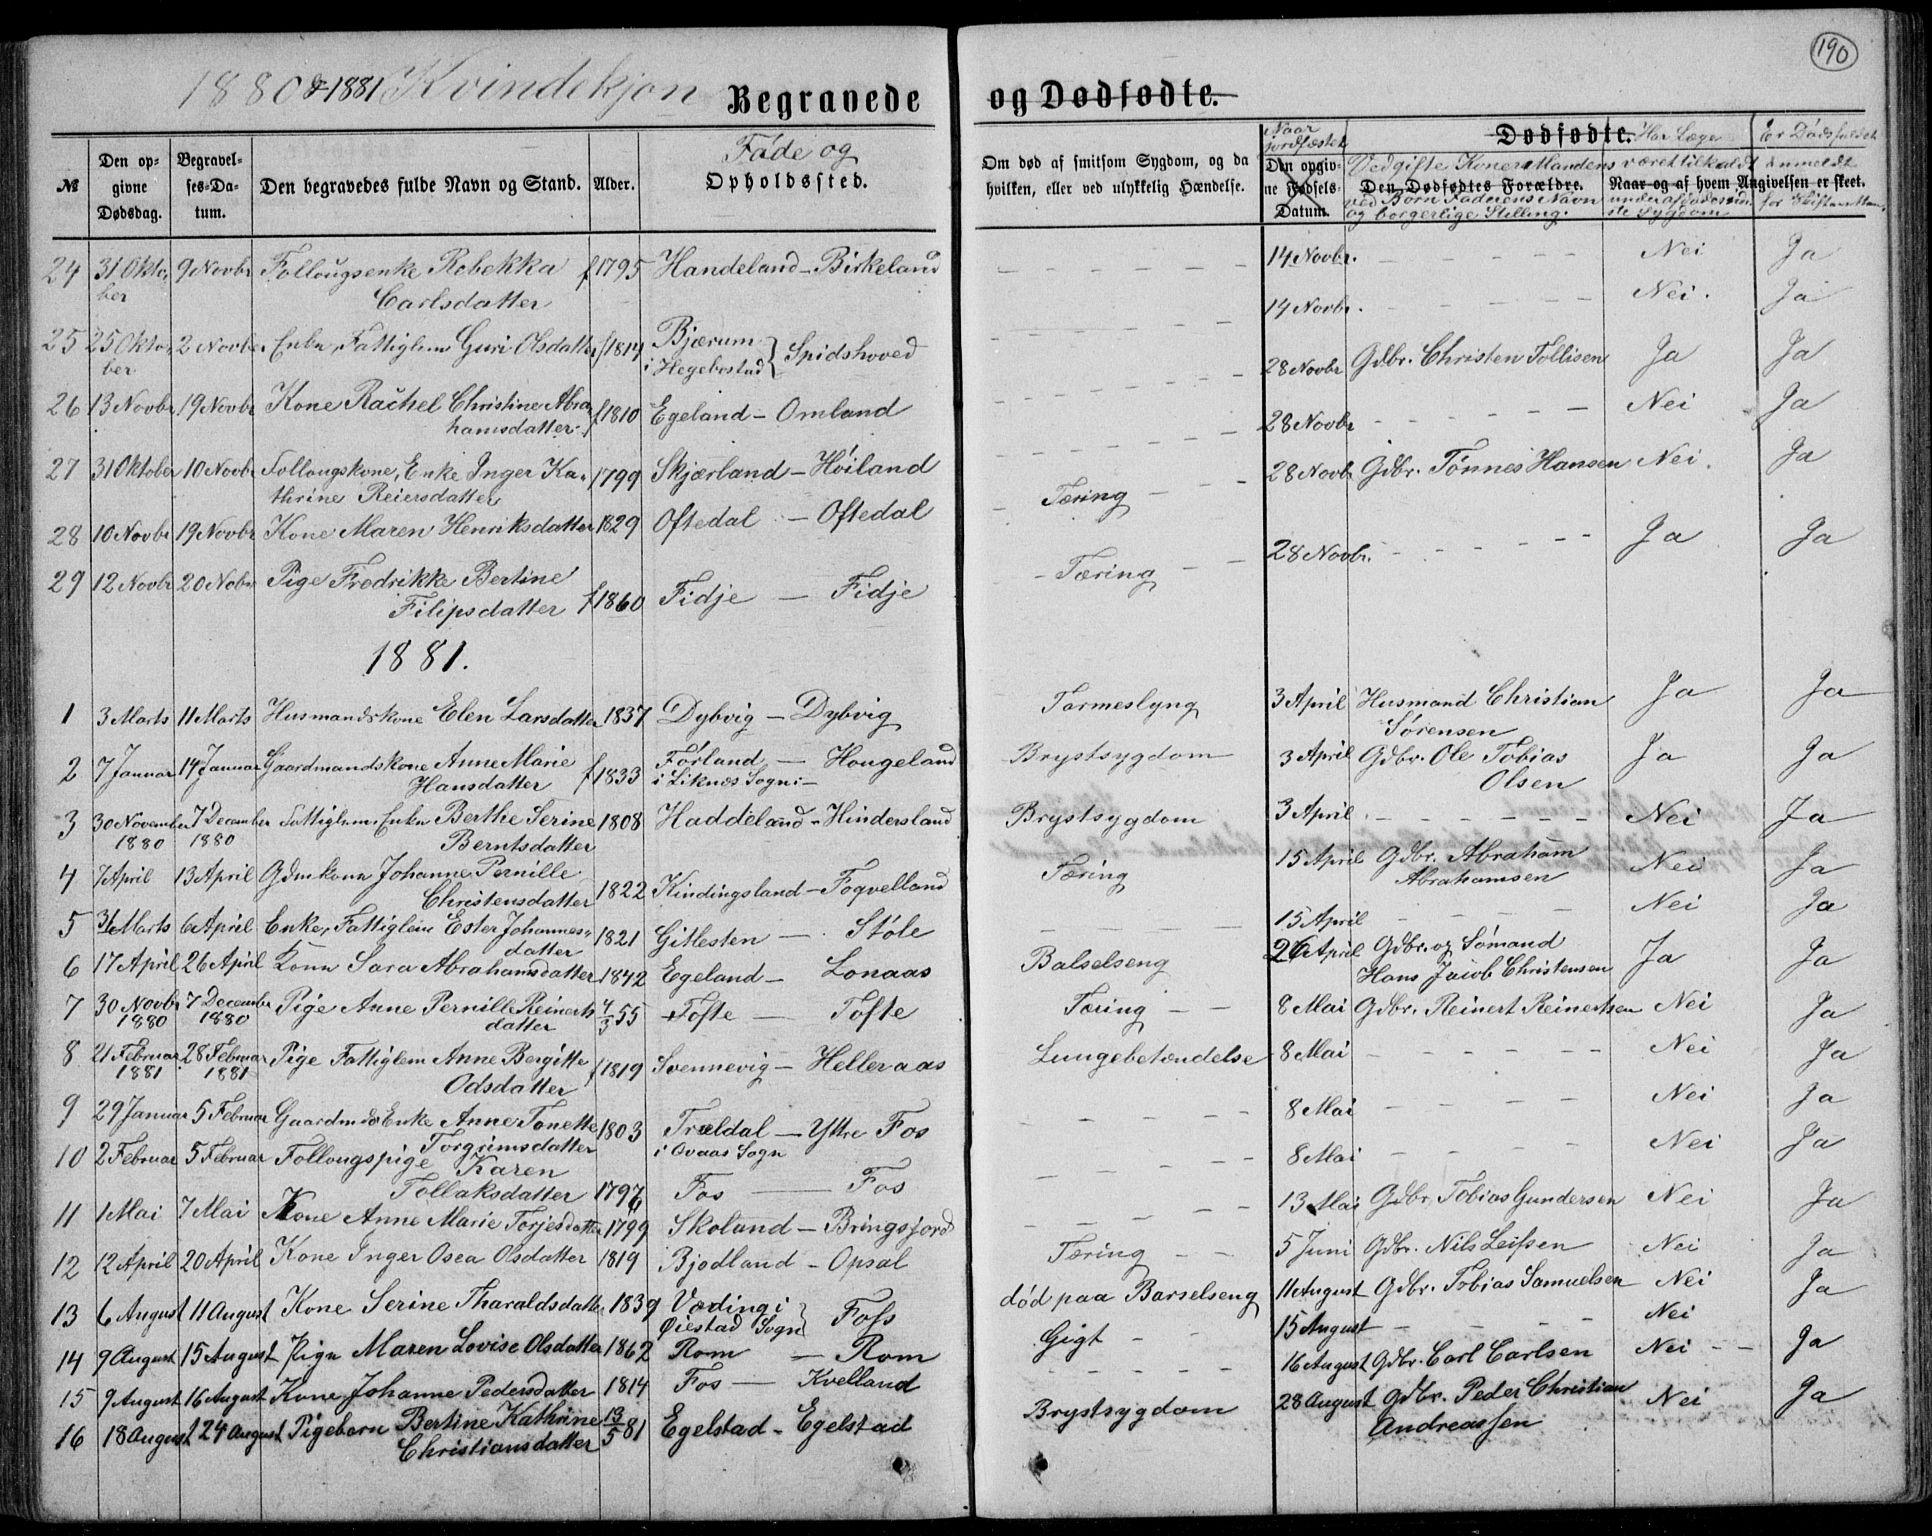 190
1880 & 1881 Kvindekjøn Begravede og Dødfødte.
№ | Den opgivne Dødsdag. | Begravelses-Datum. | Den begravedes fulde Navn og Stand. | Alder. | Føde og Opholdssted. | Om død af smitsom Sygdom, og da hvilken, eller ved ulykkelig Hændelse. | Naar jordfæstet Den opgivne Fødsels-Datum. | Dødfødte. Vedgifte Koner Mandens Den Dødfødtes Forældre. ved Børn Faderens Navn og borgerlige Stilling. | Har Læge været tilkaldt Naar og af hvem Angivelsen er skeet. under afdødes sidste Sygdom | Er Dødsfaldet anmeldt for Skifteretten.
24 | 31 Oktober | 9 Novbr | Follougsenke Rebekka Carlsdatter | f 1795 | Handeland – Birkeland | – – – | 14 Novbr. | – – – | Nei | Ja
25 | 25 Oktober | 2 Novbr. | Enke, Fattiglem Guri Olsdatter | f 1814 | Bjærum i Hegebostad } Spidshoved | – – – | 14 Novbr. | – – – | Nei. | Ja
26 | 13 Novbr | 19 Novbr | Kone Rachel Christine Abrahamsdatter. | f 1810 | Egeland – Omland | – – – | 28 Novbr | Gdbr. Christen Tollisen | Ja | Ja
27 | 31 Oktober | 10 Novbr | Follougskone, Enke Inger Kathrine Reiersdatter | 1799 | Skjærland – Høiland | – – – | 28 Novbr | – – – | Nei | Ja
28 | 10 Novbr | 19 Novbr | Kone Maren Henriksdatter | 1829 | Oftedal – Oftedal | Tæring | 28 Novbr | Gdbr. Tønnes Hansen | Nei. | Ja
29 | 12 Novbr | 20 Nobr | Pige Fredrikke Bertine Filipsdatter | f 1860 | Fidje – Fidje | Tæring | 28 Novbr. | – – – | Ja | Ja
1881.
1 | 3 Marts | 11 Marts | Husmandskone Elen Larsdatter | 1837 | Dybvig – Dybvig | Tarmeslyng | 3 April | Husmand Christian Sørensen | Ja | Ja
2 | 7 Januar | 14 Januar | Gaardmandskone Anne Marie Hansdatter | f 1833 | Førland i Liknæs Sogn – Hougeland | Brystsygdom | 3 April | Gdbr. Ole Tobias Olsen | Ja | Ja
3 | 30 November 1880 | 7 December 1880 | Fattiglem. Enke Berthe Serine Berntsdatter | 1808 | Haddeland – Hindersland | Brystsygdom | 3 April | – – – | Nei | Ja
4 | 7 April | 13 April | Gdmkone Johanne Pernille Christensdatter | 1822 | Kindingsland – Foqvelland | Tæring | 15 April | Gdbr. Abraham Abrahamsen | Nei | Ja
5 | 31 Marts | 6 April | Enke, Fattiglem Ester Johannesdatter | 1821 | Gitlesten – Støle | – – – | 15 April | – – – | Nei | Ja
6 | 17 April | 26 April | Kone Sara Abrahamsdatter | 1842 | Egeland – Lonaas | Balselseng | 26 April | Gdbr. og Sømand Hans Jacob Christensen | Ja | Ja
7 | 30 Novbr 1880 | 7 December 1880 | Pige Anne Pernille Reinertsdatter | 4/3 55 | Tofte – Tofte | Tæring | 8 Mai | Gdbr. Reinert Reinertsen | Nei | Ja
8 | 21 Februar 1881 | 28 Februar 1881 | Pige Fattiglem Anne Bergitte Odsdatter | f 1819 | Svennevig – Helleraas | Lungebetændelse | 8 Mai | – – – | Nei | Ja
9 | 29 Januar | 5 Februar | Gaardmds Enke Anne Tonette Torgrimsdatter | 1803 | Trældal i Qvaas Sogn – Yttre Fos | – – – | 8 Mai | – – – | Nei | Ja
10 | 2 Februar | 5 Februar | Follougspige Karen Tollaksdatter | 1796 | Fos – Fos | – – – | 8 Mai | – – – | Nei | Ja
11 | 1 Mai | 7 Mai | Kone Anne Marie Torjesdatter | 1799 | Skoland – Bringsjord | – – – | 13 Mai | Gdbr. Tobias Gundersen | Nei | Ja
12 | 12 April | 20 April | Kone Inger Osea Olsdatter | 1819 | Bjodland – Opsal | Tæring | 5 Juni | Gdbr. Nils Leifsen | Nei | Ja
13 | 6 August | 11 August | Kone Serine Tharaldsdatter | 1839 | Væding i Øiestad Sogn } Foss | død paa Barselseng | 11 August | Gdbr. Tobias Samuelsen | Nei | Ja
14 | 9 August | 15 August | Pige Maren Lovise Olsdatter | 1862 | Rom – Rom | Gigt | 15 August | – – – | Nei
15 | 9 August | 16 August | Kone Johanne Pedersdatter | 1814 | Fos – Kvelland | – – – | 16 August | Gdbr. Carl Carlsen | Nei | Ja
16 | 18 August | 24 August | Pigebarn Bertine Kathrine Christiansdatter | 13/5 81 | Egelstad – Egelstad | Brystsygdom | 28 August | Gdbr. Peder Christian Andreassen | Nei | Ja